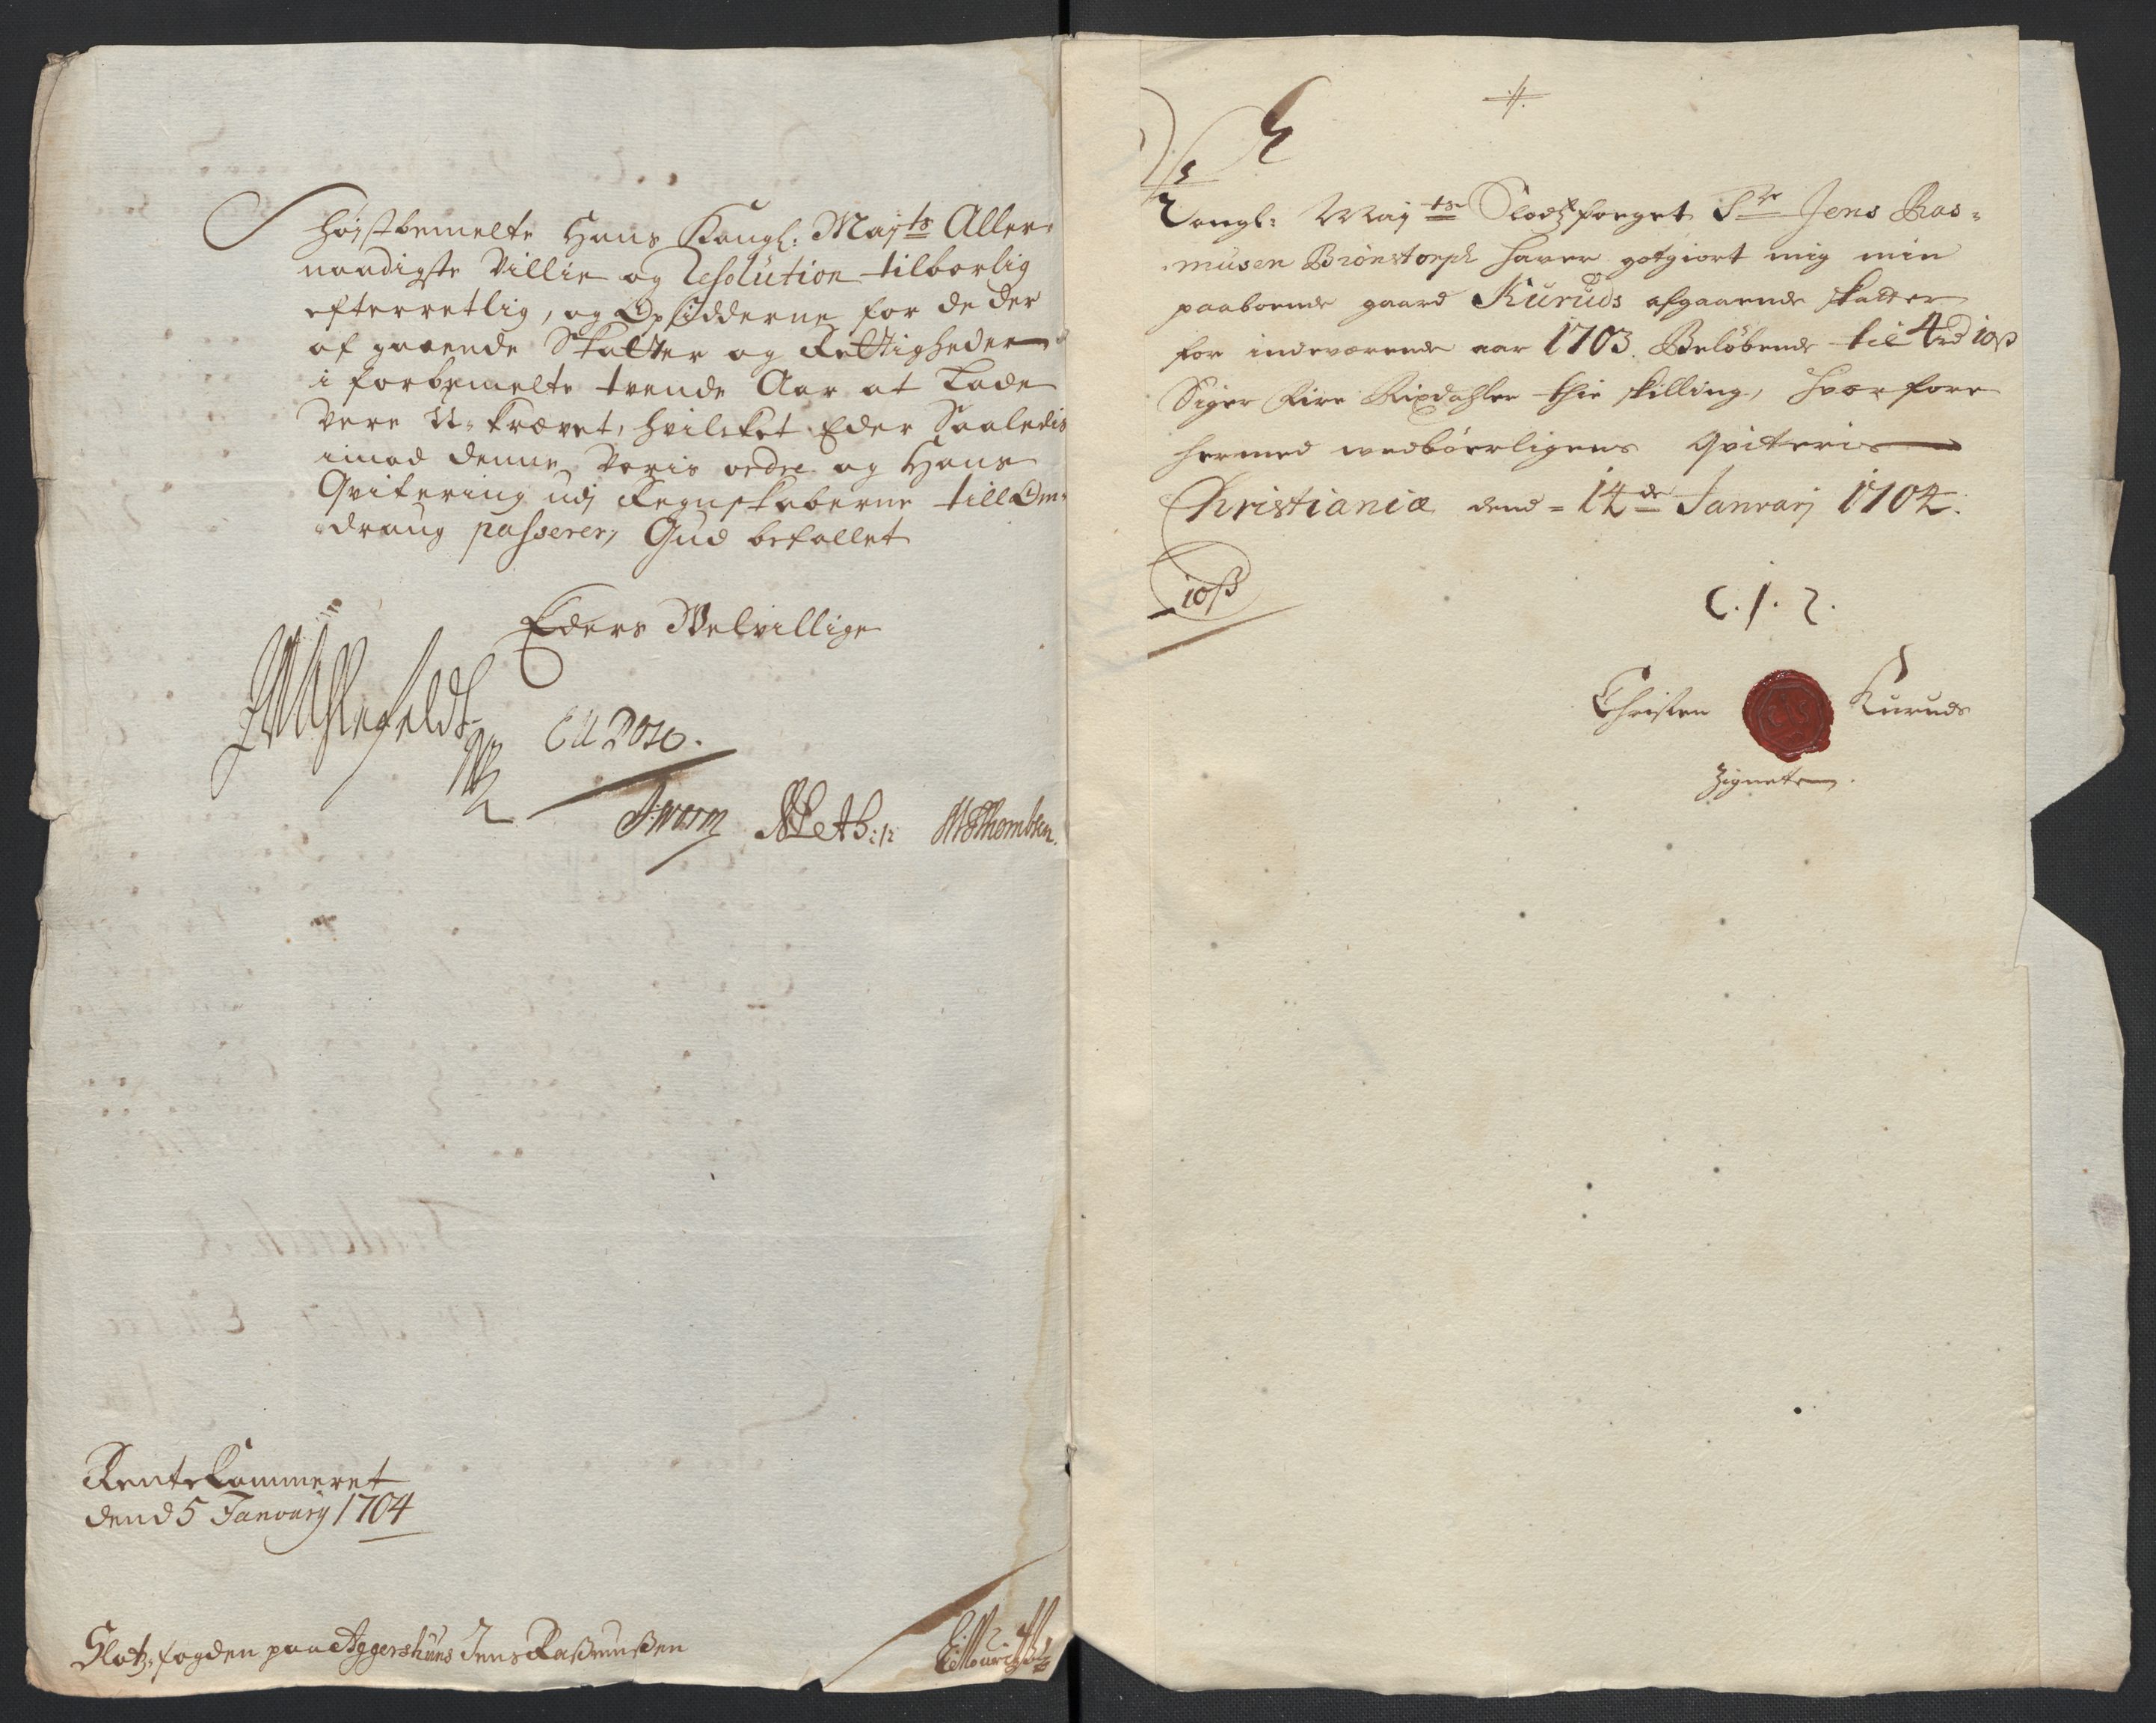 Høistbemelte Hans Kongl: Maj:ts Aller-
naadigste Villie og Resolution tilbørlig
efterretlig, og Opsidderne for de der
af gaaende Skatter og Rettigheder
i forbemelte tvende Aar at Lade
Være U-krævet, hvilcket Eder Saaledis
imod denne Voris ordre og Hans
Qvitering udj Regnskaberne till Om-
draug passerer, Gud befallet
Eders Velvillige
Worm
M Thombsen
RenteCammeret
dend 5 Januarij 1704
Slotz-fogden paa Aggershuus Jens Rasmussen
Kongl: Maij:ts Slodtzfoeget Sr Jens Ras-
musen Brönstorph haver gotgiort mig min
paaboende gaard Kuruds afgaaende skatter
for indeværende aar 1703. Beløbende til 4 rd 10 ß
Siger Fire Rixdahler thie skilling, hvorfore
hermed wedbörligens Qviteris
Christianiæ dend 14de Januarj 1704.
10 ß
C. I. 2.
Christen Kuruds
Zignete